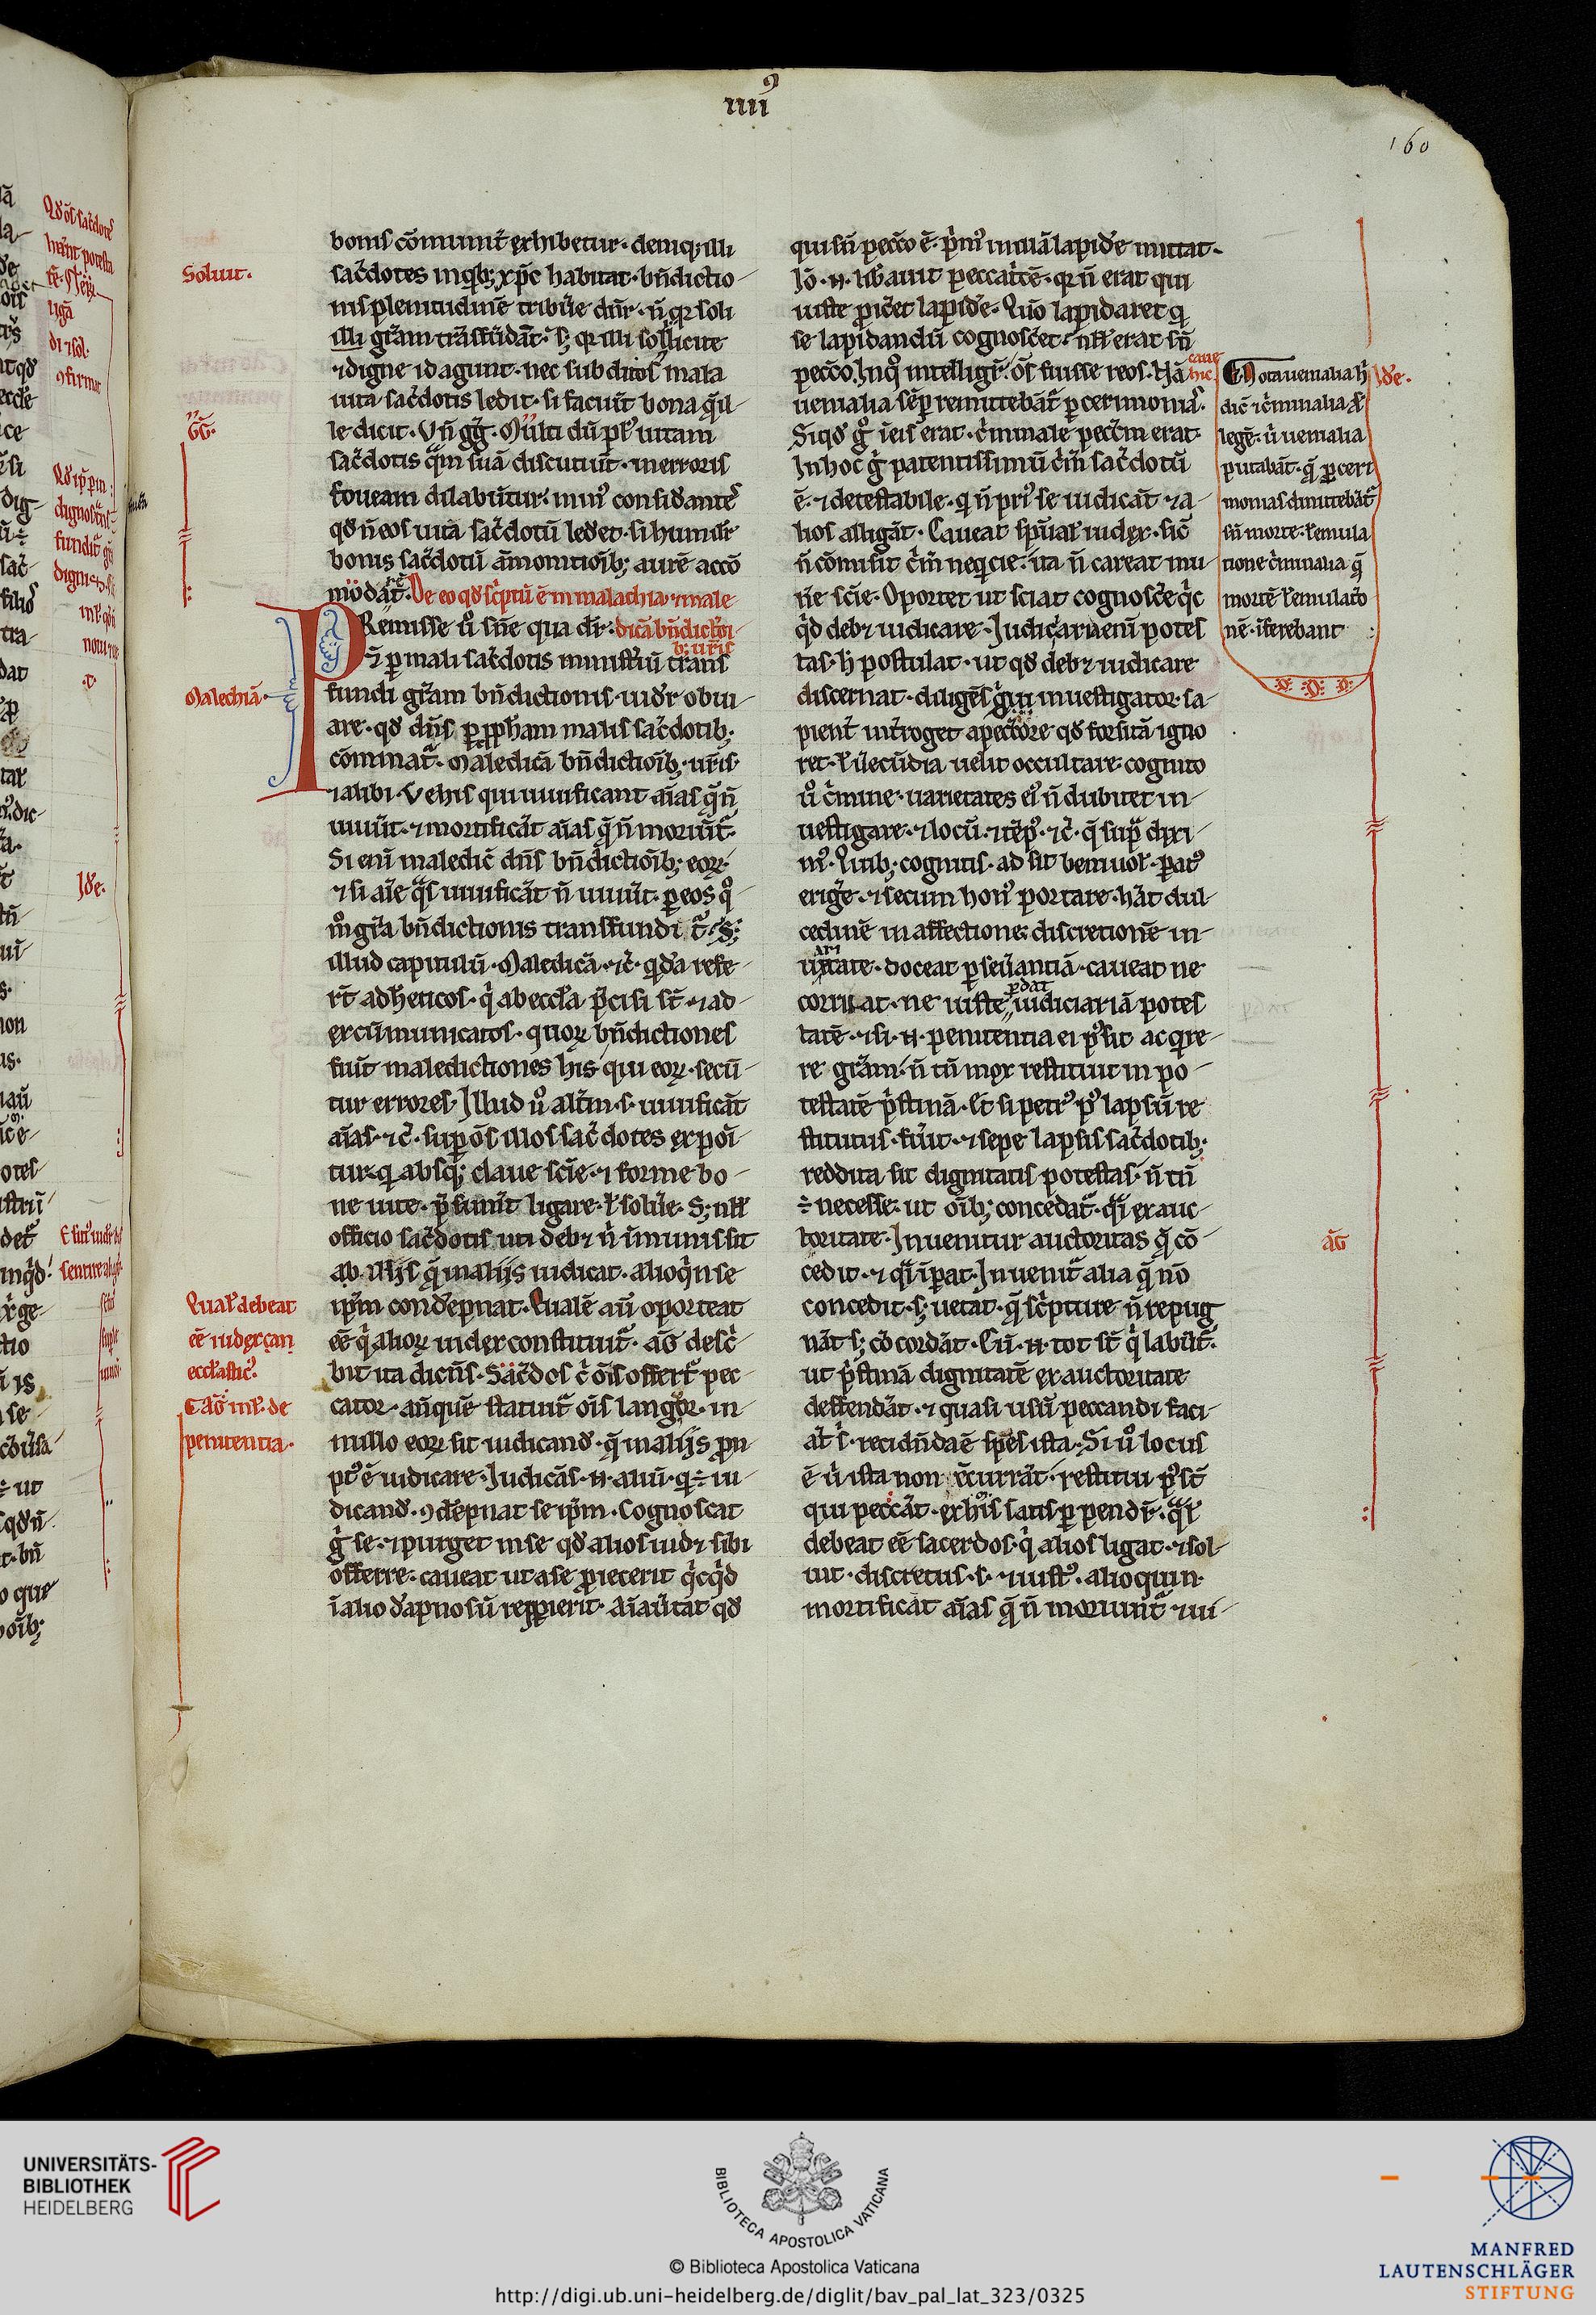 IIII
160
bonis cōmunit̄ exhibetur. deniq; illi
sac̄dotes in qb; xp̄c habitat. bn̄dictio
nis plenitudinē tribue dn̄r. n̄ qr soli
illi gr̄am trāsfūdāt. s; qr illi sollicite
⁊ digne id agunt. nec subditos mala
uita sac̄dotis ledit. si faciūt bona q̄ il
le dicit. Vn̄ gg̅. Multi dū pl' uitam
sac̄dotis q̄m suā discutiūt. in erroris
foueam dilabūtur. min' considantes
qd n̄ eos uita sac̄dotū ledet. si humilr
bonis sac̄dotū āmonitiōib; aurē accō
modāt. De eo qd sc̄ptū ē in malachia. male
PRemisse u° sn̄e qua dr̄. dicā bn̄dictōi
b; ur̄is
ē p mali sac̄dotis minist'iū trans
fundi gr̄am bn̄dictionis. uidr obui
are. qd dn̄s p pphām malis sac̄dotib;
cōminat̄. Maledicā bn̄dictiōib; ur̄is.
⁊ alibi. Ve his qui uiuificant aīas q̄ n̄
uiuūt. ⁊ mortificāt aīas q̄ n̄ moriūt̄.
Si eni maledic̄ dn̄s bn̄dictiōib; eoꝝ.
⁊ si aīe q̄s uiuificāt n̄ uiuūt. p eos q°
m° gr̄a bn̄dictionis transfundi t̄. S;
illud capitulū. Maledicā. ⁊c̄. qdā refe
rt̄ ad heticos. q' ab eccl'a p̄cisi st̄. ⁊ ad
excūmunicatos. quoꝝ bn̄dictiones
fiūt maledictiones his qui eoꝝ secū
tur errores. Illud u° alt̄m. s. uiuificāt
aīas. ⁊c̄. sup ōs illos sac̄dotes expoī
tur. q absq; claue scīe. ⁊ forme bo
ne uite. p̄sumūt ligare. l' soluere. S; nll'
officio sac̄dotis uti debet n̄ īmunis sit
ab illis q̄ in aliis iudicat. alioqn se
ipm condēpnat. Qualē aū oporteat
eē q' alioꝝ iudex constituit̄. aḡ desc'
bit ita dicēs. Sac̄dos c' ois offert̄ pec
cator. an̄ quē statuit̄ ois langor. in
nullo eoꝝ sit iudicand'. q̄ in aliis pm
pt' ē iudicare. Iudicās. n. aliū. q ÷ iu
dicand'. 9dēpnat se ipm. Cognoscat
g' se. ⁊ purget in se qd alios uidet sibi
offerre. caueat ut a se piecerit q'cq'd
ī alio dāpnosū reppierit. Aīaūtat qd
qui sn̄ pecc̄o ē. p̄m' in illā lapidē mittat.
Io. n. lib'auit peccat'cē. qr n̄ erat qui
iuste piceret lapidē. Quō lapidaret q
se lapidandū cognosc̄et. nll' erat sn̄
pecc̄o. In q° intelligr̄. ōs fuisse reos. Nā
uenialia sēp remittebāt̄ p cerimonias.
Siqd g' ī eis erat. c'minale pecc̄m erat.
In hoc g' patentissimū c'm̄ sac̄dotū
ē. ⁊ detestabile. q n̄ pri' se iudicāt ⁊ a
lios alligāt. Caueat sp̄ual' iudex. sic̄
n̄ cōmisit c'm̄ neqcie. ita n̄ careat mu
nē scīe. Oportet ut sciat cognosce q'c
q'd debet iudicare. Iudiciaria eni potes
tas. h' postulat. ut qd debet iudicare
discernat. diligēs g' inuestigator. sa
pient̄ int̄roget a pecc̄ore qd forsitā igno
ret. l' uerecūdia uelit occultare. cognito
u° c'mine. uarietates ei' n̄ dubitet in
uestigare. ⁊ locū. ⁊ tēp'. ⁊c̄. q̄ sup dixi
m'. Quib; cognitis. ad sit beniuol'. pat'
erige. ⁊ secum hon' portare. hāt dul
cedinē in affectione. discretionē in
uarietate. doceat pseuantiā. caueat ne
corruat. ne iuste pdat iudiciariā potes
tatē. ⁊ si. n. penitentia ei p°sit acqre
re gr̄am. n̄ tn̄ mox restituit in po
testatē p'stinā. Et si petr' p' lapsū re
stitutus. fu'it. ⁊ sepe lapsis sac̄dotib;
reddita sit dignitatis potestas. n̄ tn̄
÷ necesse. ut oib; concedat̄. qi ex auc
toritate. Inuenitur auctoritas q̄ cō
cedit. ⁊ qi īpat. Inuenit̄ alia q̄ nō
concedit. s; uetat. q̄ sc'pture n̄ repug
nāt s; cōcordāt. Cū. n. tot st̄ q' labūt̄.
ut p'stinā dignitatē ex auctoritate
deffendāt. ⁊ quasi usū peccandi faci
āt s'. recidn̄da ē spes ista. Si u° locus
ē u' ista non ēcurrāt. restitui p°st̄
qui peccāt. ex his satis ppendr̄. q̄l'
debeat eē sacerdos. q' alios ligat. ⁊ sol
uit. discretus. s. ⁊ iust'. alioquin
mortificāt aīas q̄ n̄ moriunt̄. ⁊ ui
Soluit.
Gḡ.
Malechiā.
Qual' debeat
eē iudex
eccl'astic'.
Aḡ in l'. de
penitentia.
caue
hic
Nota uenialia h'
dic̄ ⁊ c'minalia
legē. n̄ uenialia
putabāt. q̄ p ceri
monias dimittebāt̄
sn̄ morte. l' emula
tione. c'minalia q̄
mortē l' emulatio
nē. īferebant
Idē.
aḡ
UNIVERSITÄTS-
BIBLIOTHEK
HEIDELBERG
BIBLIOTECA APOSTOLICA VATICANA
© Biblioteca Apostolica Vaticana
http://digi.ub.uni-heidelberg.de/diglit/bav_pal_lat_323/0325
MANFRED
LAUTENSCHLÄGER
STIFTUNG